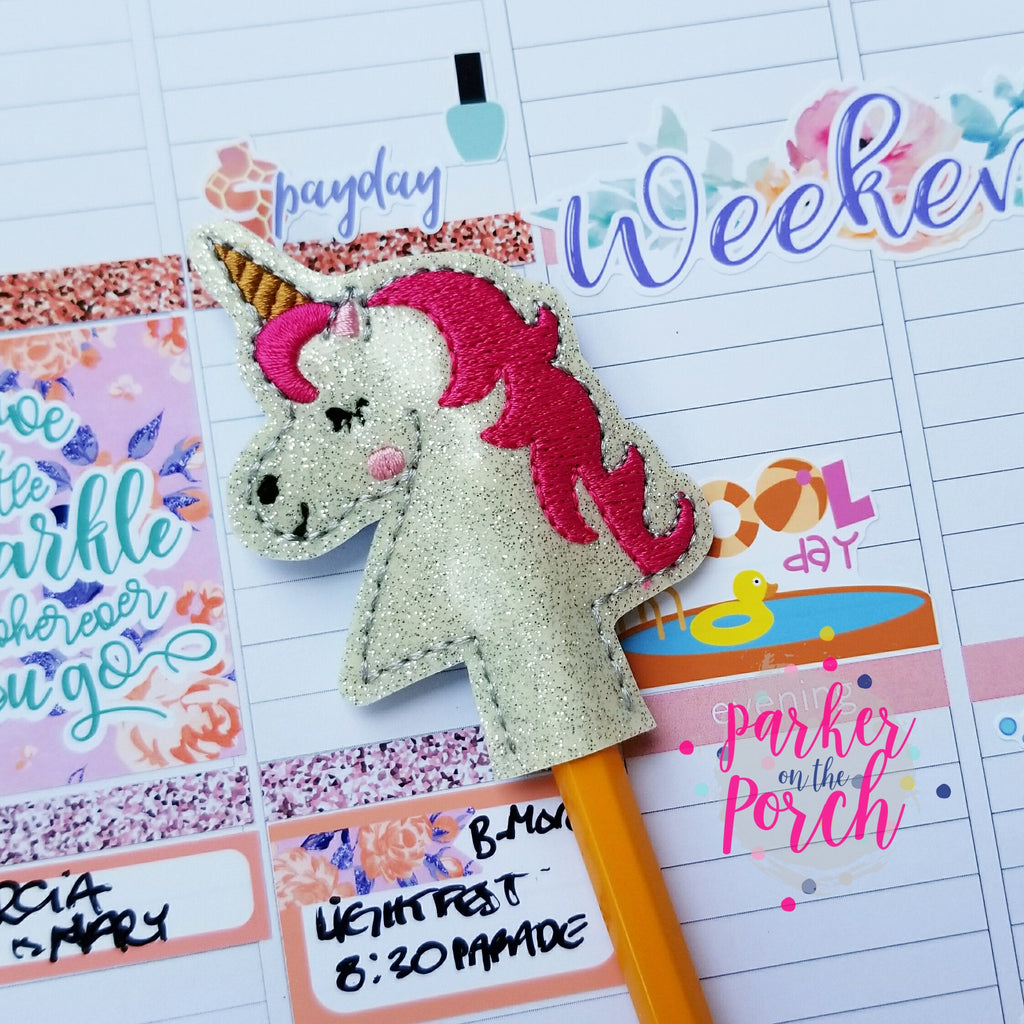 payday
Weeken
Sparkle
wherever
you go
COOL
day
evening
parker
on the
Porch
B-Mor
LIGHTFEST
8:30 PARADE
MARY